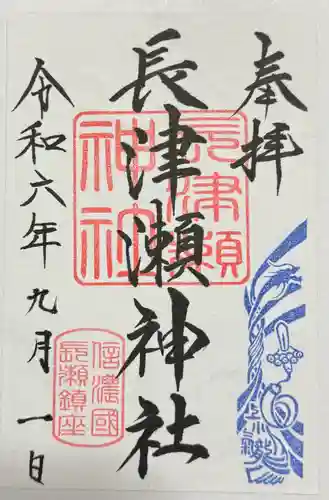 奉拝
長津瀬神社
令和六年九月一日
長津瀬
神社
信濃國
長瀬鎮座